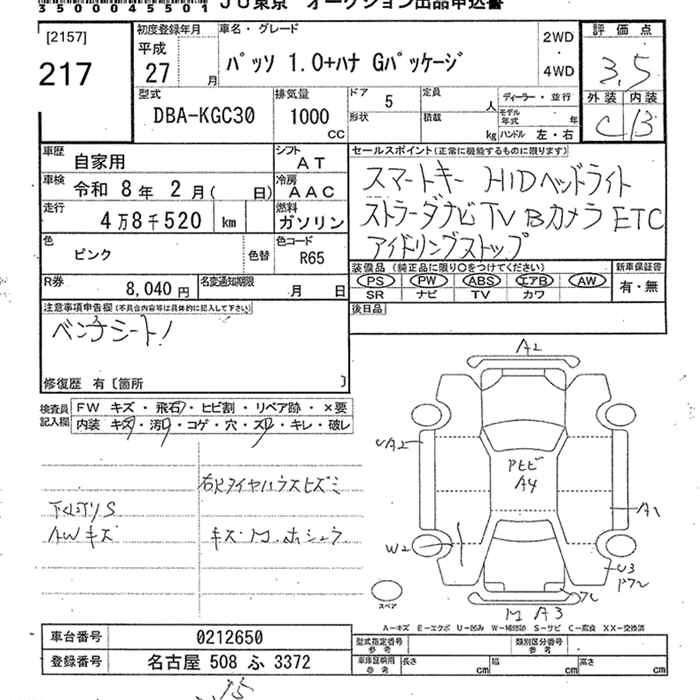 35004550 1 JU東京 オークション出品申込書
[2157]
217
初度登録年月
平成
27 月
車名・グレード
パッソ 1.0+ハナ Gパッケージ
2WD
・
4WD
評価点
3.5
外装 内装
C B
型式
DBA-KGC30
排気量
1000
cc
ドア 5
形状
定員 人
積載 kg
ディーラー・並行
モデル年式 年
ハンドル 左・右
車歴 自家用
シフト AT
車検 令和 8年 2月( 日)
冷房 AAC
走行 4万8千520 km
燃料 ガソリン
色 ピンク 色替
色コード R65
R券 8,040円
名変通知期限 月 日
セールスポイント(正常に機能するものに限ります)
スマートキー HIDヘッドライト
ストラーダナビ TV Bカメラ ETC
アイドリングストップ
装備品(純正品に限り○をつけてください)
PS PW ABS エアB AW
SR ナビ TV カワ
新車保証書
有・無
後日品
注意事項申告欄(不具合内容等は具体的に記入して下さい)
ベンチシート!
修復歴 有〔箇所 〕
検査員記入欄
FW キズ・飛石・ヒビ割・リペア跡・×要
内装 キズ・汚レ・コゲ・穴・スレ・キレ・破レ
AWキズ
A2
A2
A4
A1
W2
U3
A3
スペア
A-キズ E-エクボ U-凹み W-補修跡 S-サビ C-腐食 XX-交換済
車台番号 0212650
登録番号 名古屋 508 ふ 3372
型式指定番号 参考
類別区分番号 参考
車庫証明用 参考
長さ cm
幅 cm
高さ cm